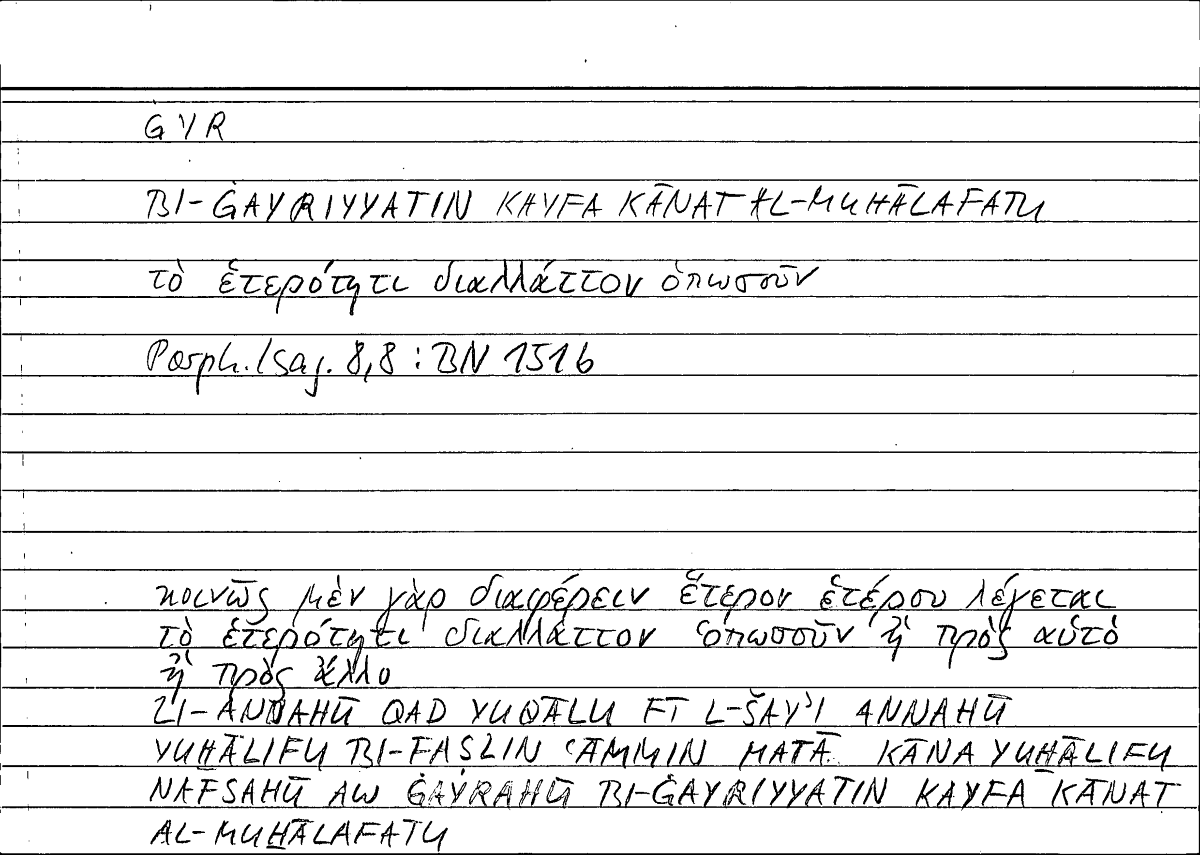 ĠYR
BI-ĠAYRIYYATIN KAYFA KĀNAT AL-MUḪĀLAFATU
τὸ ἑτερότητι διαλλάττον ὁπωσοῦν
Porph. Isag. 8,8 : BN 151b
κοινῶς μὲν γὰρ διαφέρειν ἕτερον ἑτέρου λέγεται
τὸ ἑτερότητι διαλλάττον ὁπωσοῦν ἢ πρὸς αὑτὸ
ἢ πρὸς ἄλλο
LI-ANNAHŪ QAD YUQĀLU FĪ L-ŠAYʾI ANNAHŪ
YUḪĀLIFU BI-FAṢLIN ʿĀMMIN MATĀ KĀNA YUḪĀLIFU
NAFSAHŪ AW ĠAYRAHŪ BI-ĠAYRIYYATIN KAYFA KĀNAT
AL-MUḪĀLAFATU